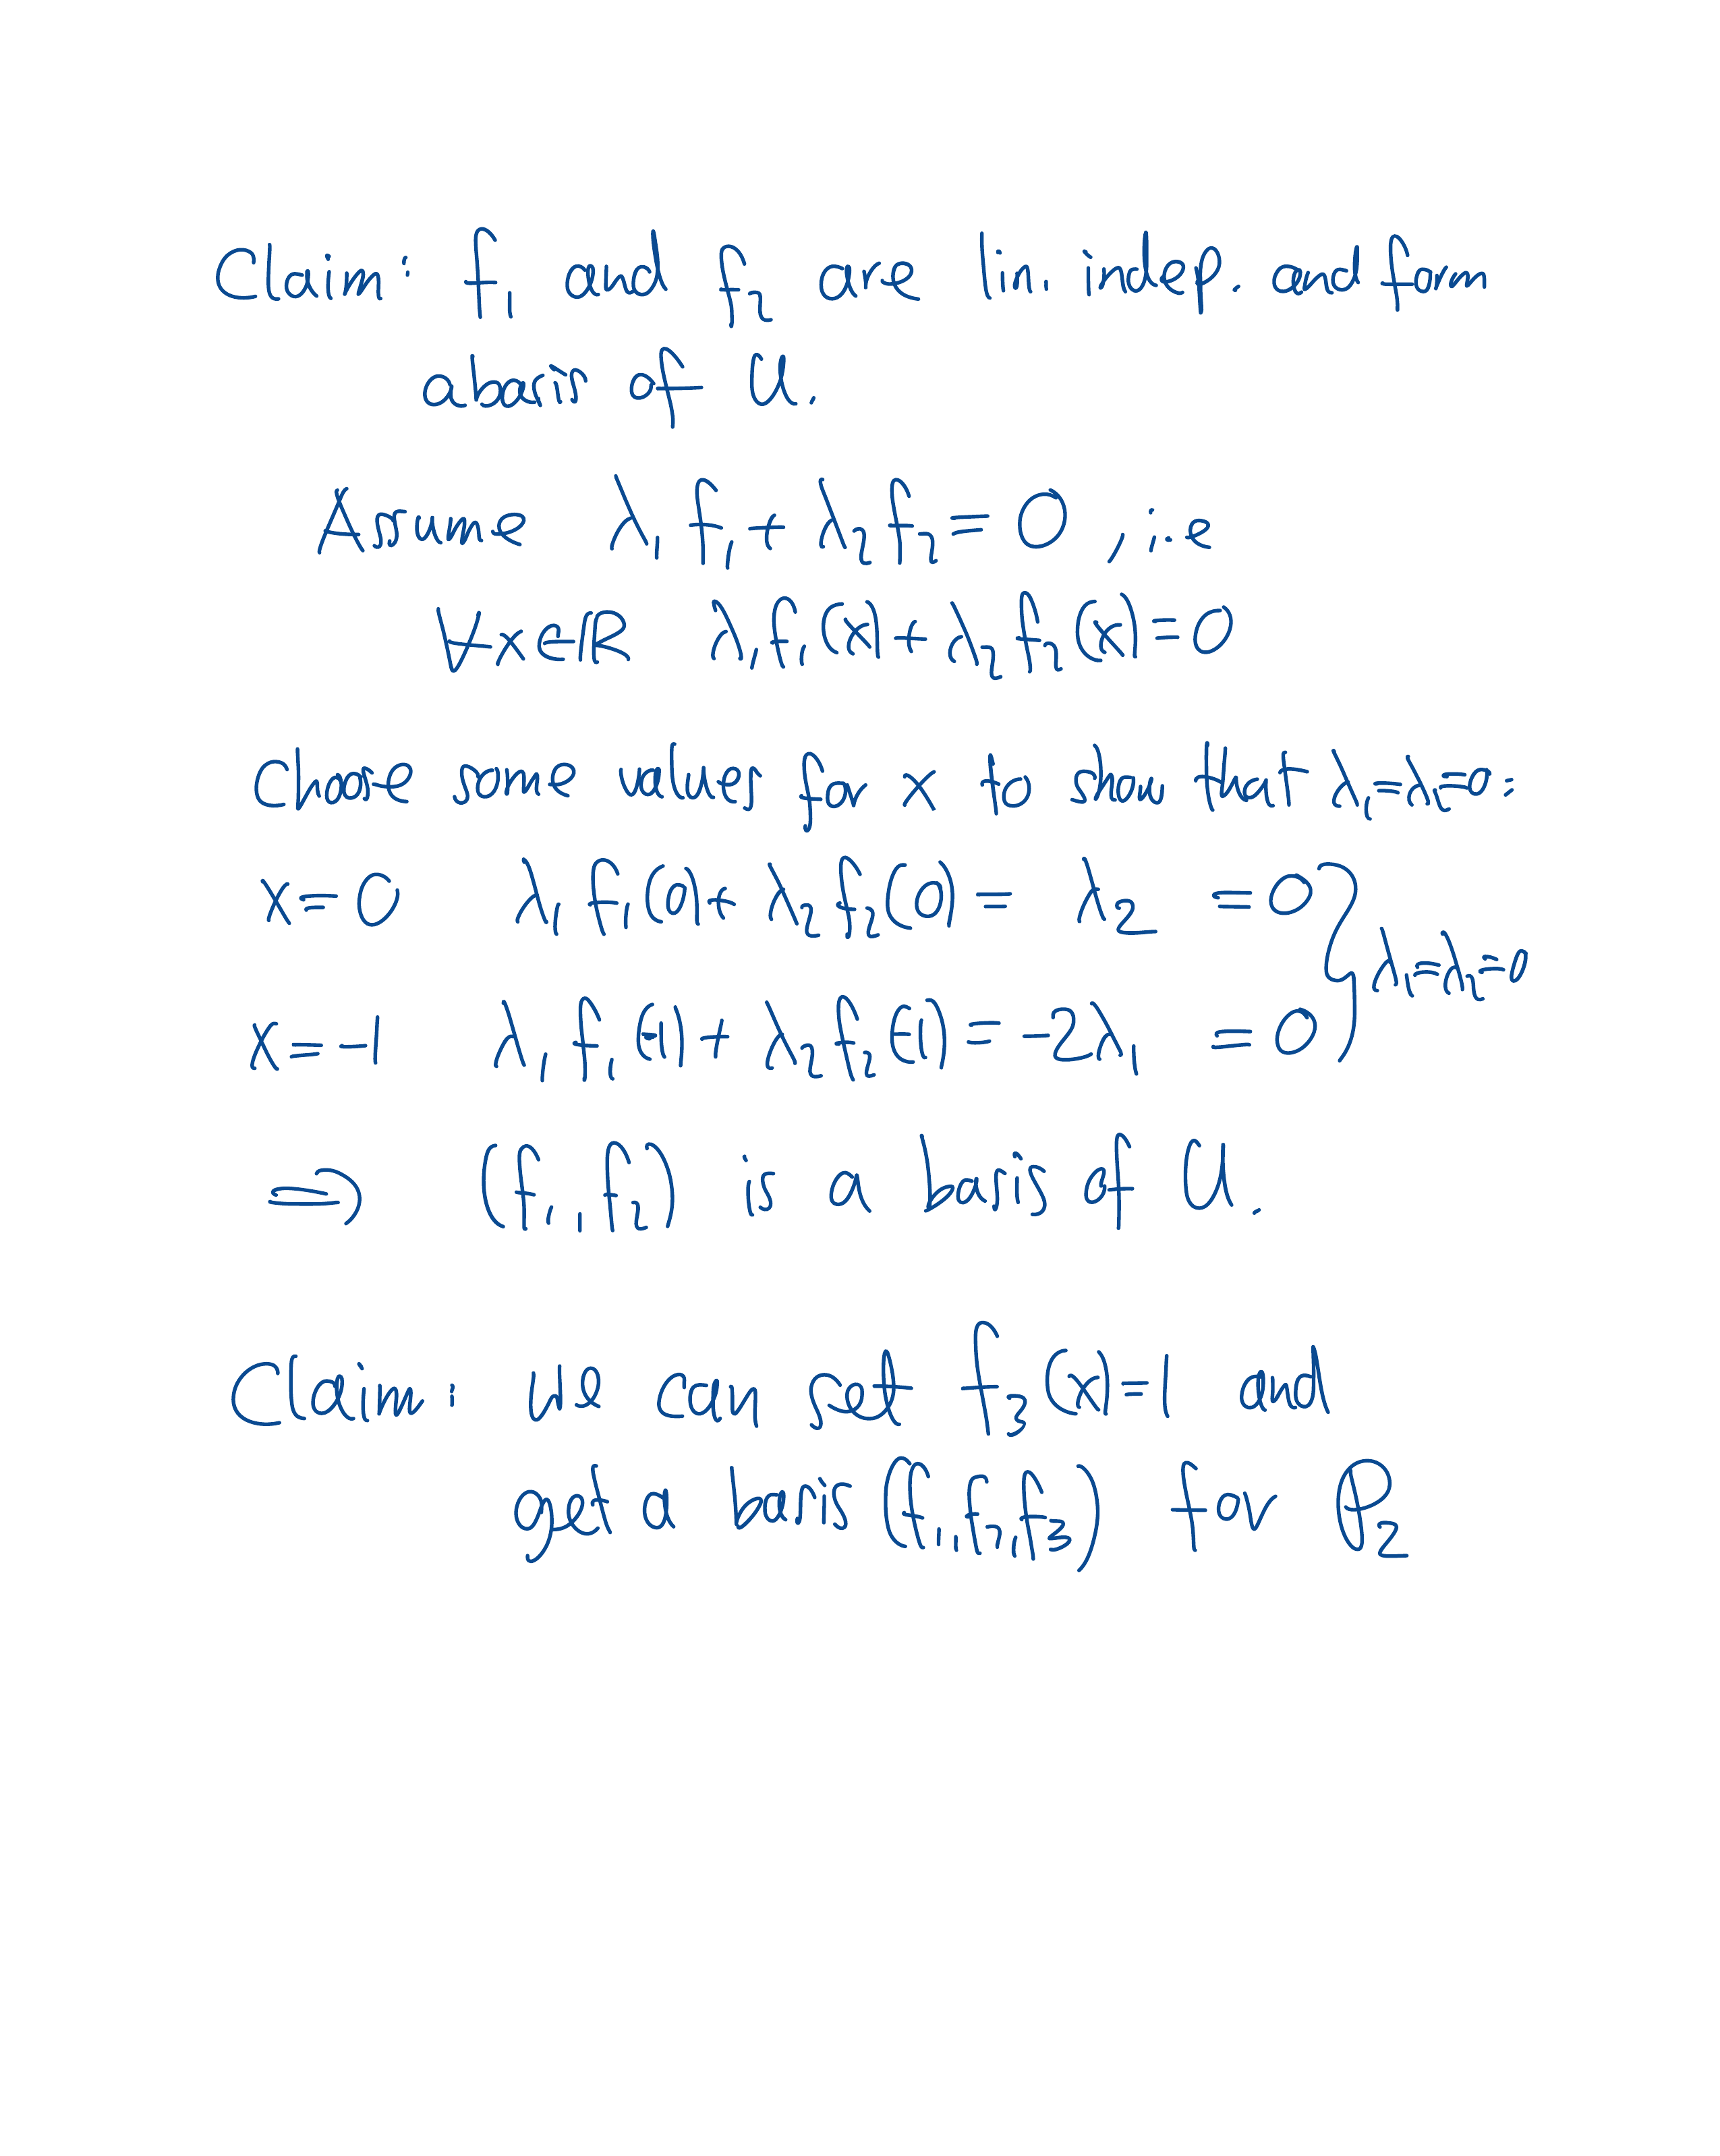 Claim: f₁ and f₂ are lin. indep. and form
a basis of U.
Assume λ₁f₁ + λ₂f₂ = 0, i.e
∀x∈ℝ λ₁f₁(x) + λ₂f₂(x) = 0
Chose some values for x to show that λ₁=λ₂=0:
x=0 λ₁f₁(0) + λ₂f₂(0) = λ₂ = 0
x=-1 λ₁f₁(-1) + λ₂f₂(-1) = -2λ₁ = 0 } λ₁=λ₂=0
⇒ (f₁, f₂) is a basis of U.
Claim: We can set f₃(x)=1 and
get a basis (f₁, f₂, f₃) for P₂